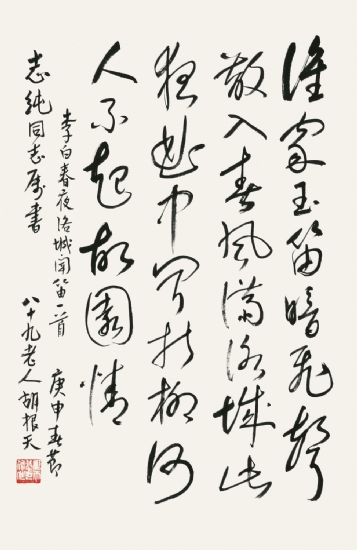 谁家玉笛暗飞声
散入春风满洛城此
夜曲中闻折柳何
人不起故园情
李白春夜洛城闻笛一首 庚申春节
志纯同志属书 八十九老人胡根天